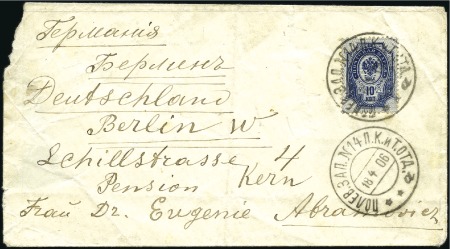 Германія
Берлинъ
Deutschland
Berlin W
Schillstrasse 4
Pension Kern
Frau Dr. Eugenie Abramovicz
10
ПОЛЕВ. ЗАП. №14 П.К. и Т. ОТД.
18 4 06